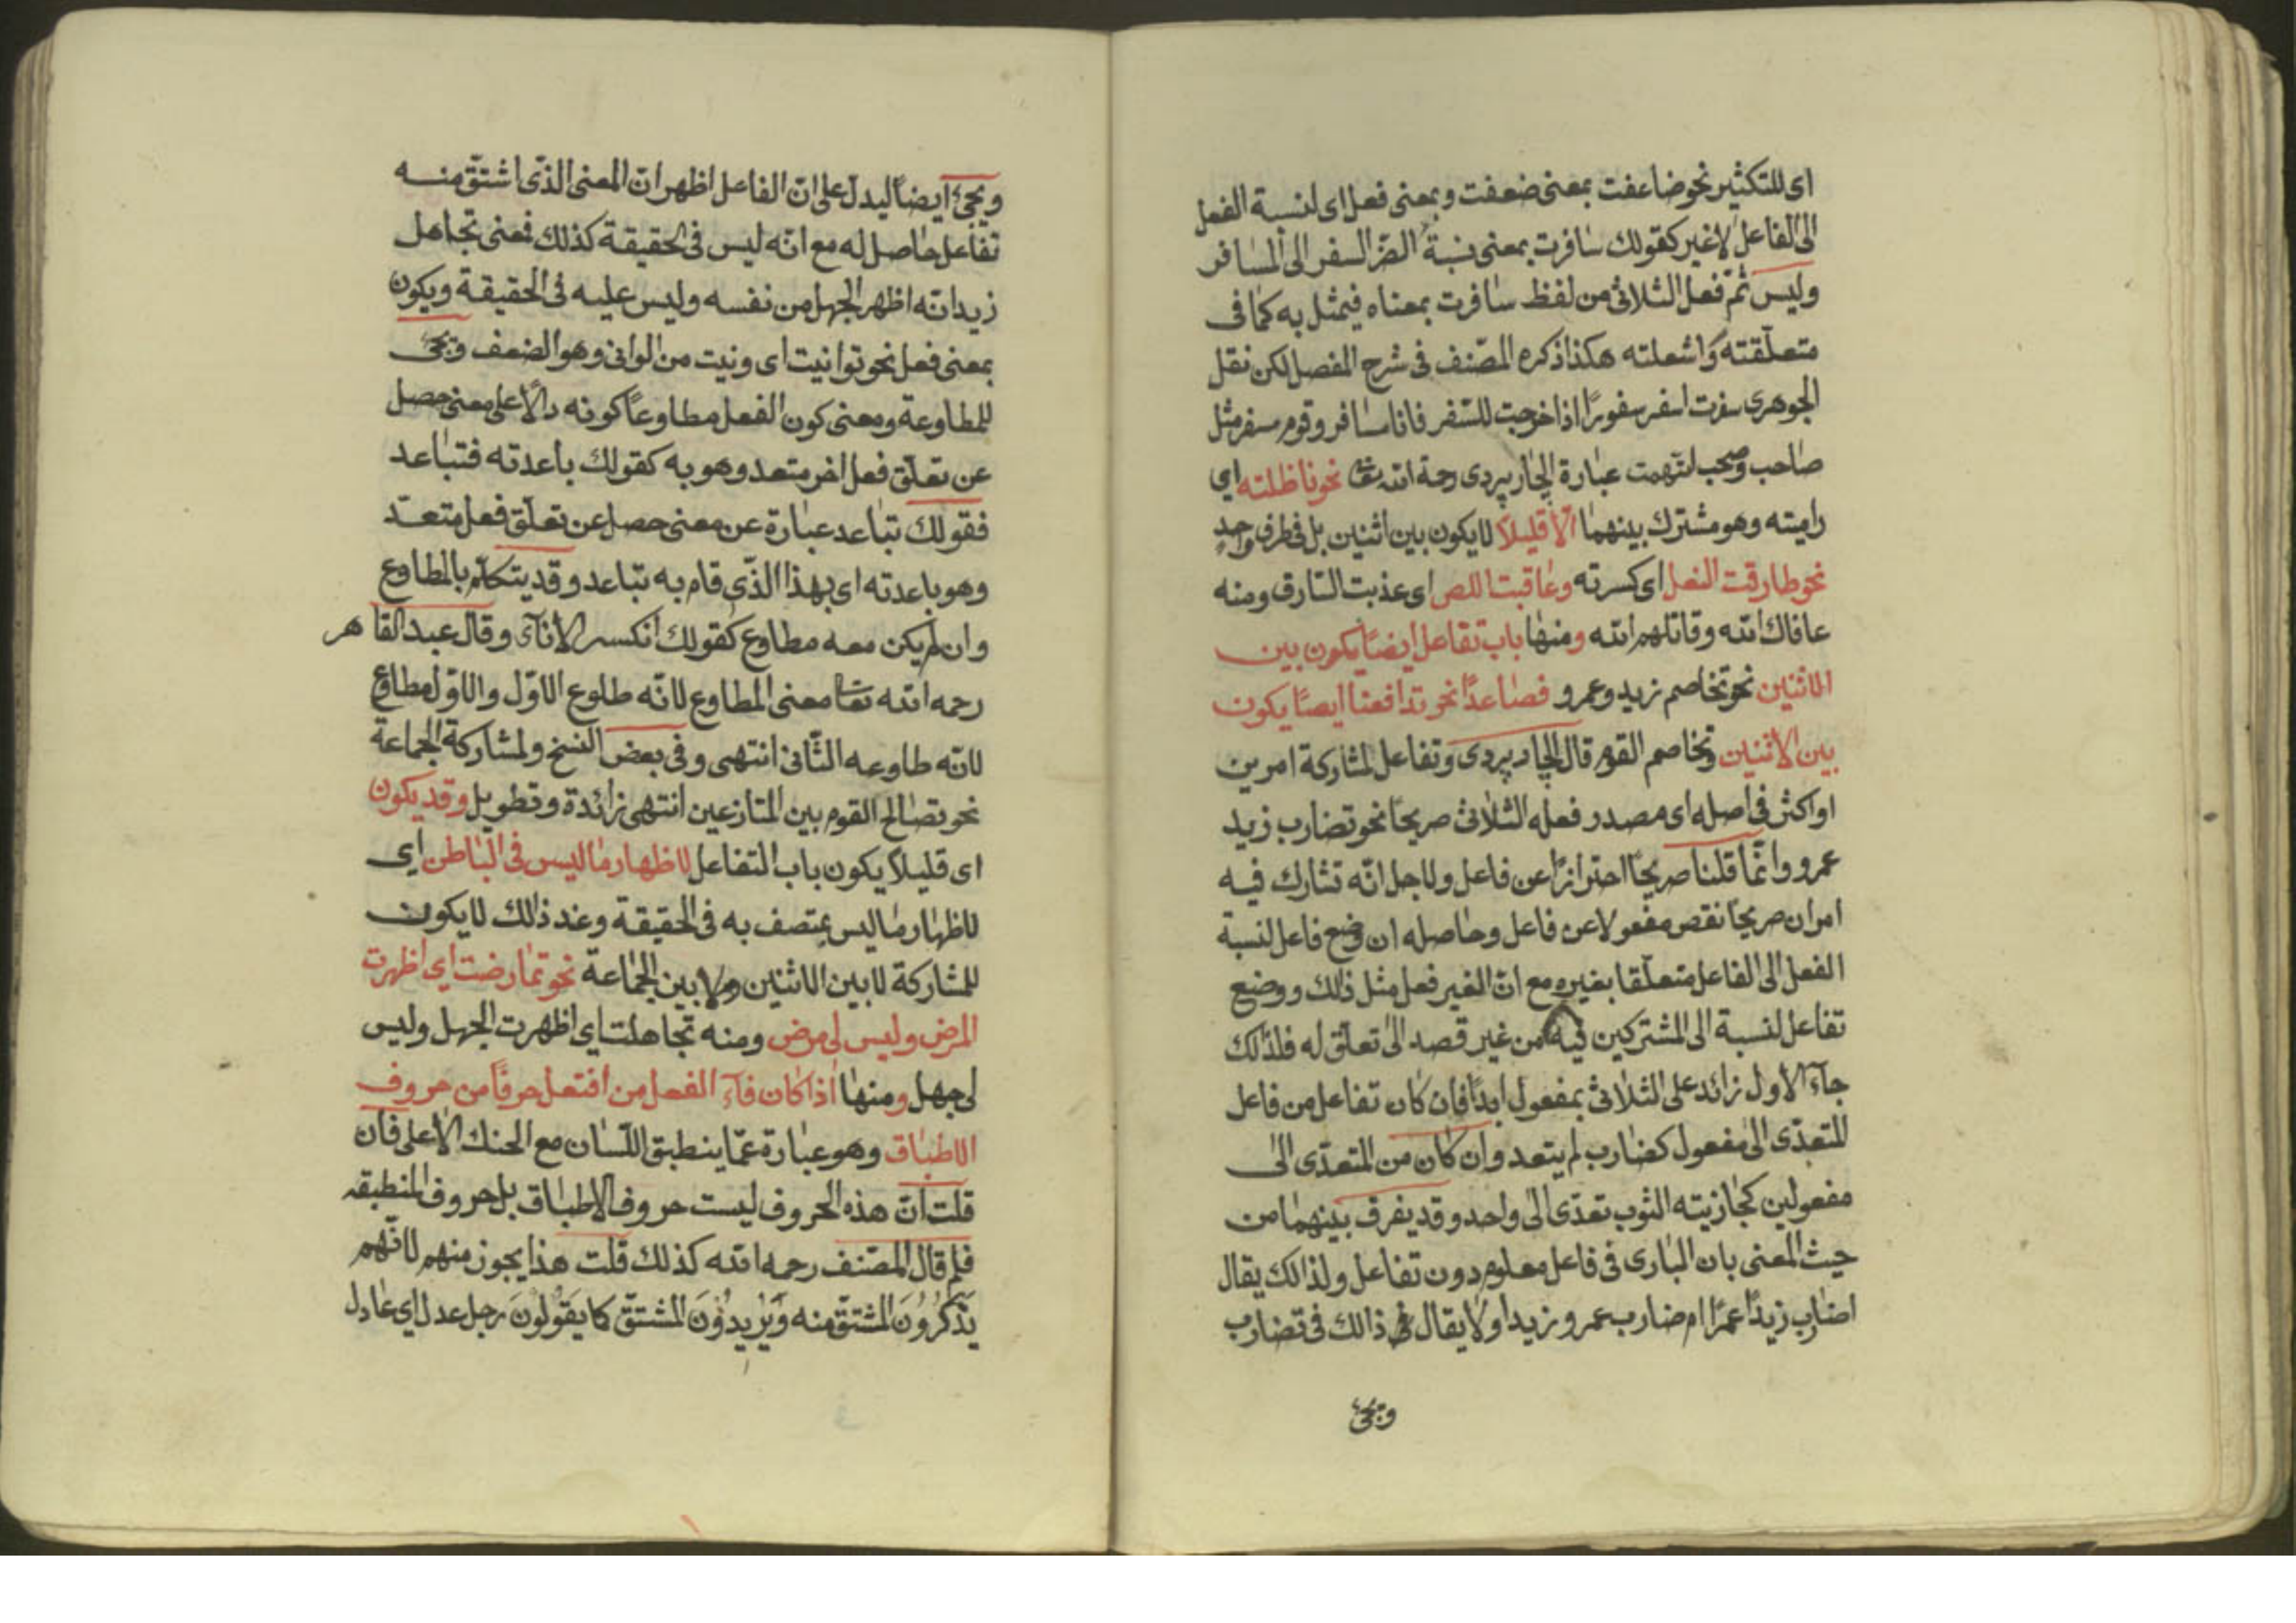 اى للتكثير نحو ضاعفت بمعنى ضعفت وبمعنى فعل اى لنسبة الفعل
الى الفاعل لا غير كقولك سافرت بمعنى نسبة السفر الى المسافر
وليس ثم فعل الثلاثى من لفظ سافرت بمعناه فيمثل به كما فى
متعلقته واشعلته هكذا ذكره المصنف فى شرح المفصل لكن نقل
الجوهرى سفرت اسفر سفورًا اذا خرجت للسفر فانا مسافر وقوم سفر مثل
صاحب وصحب انتهت عبارة الجاربردى رحمة الله تعا نحو ناظلته اي
راميته وهو مشترك بينهما الّا قليلاً لا يكون بين اثنين بل فى طرف واحدٍ
نحو طارقت النعل اى كسرته وعاقبت اللص اى عذبت السارق ومنه
عافاك الله وقاتلهم الله ومنها باب تفاعل ايضًا يكون بين
الاثنين نحو تخاصم زيد وعمرو فصاعدًا نحو تدافعنا ايضًا يكون
بين الاثنين وتخاصم القوم قال الجاربردى وتفاعل لمشاركة امرين
او اكثر فى اصله اى مصدر فعله الثلاثى صريحًا نحو تضارب زيد
عمرو وانّما قلنا صريحًا احترازًا عن فاعل ولاجل انّه تشارك فيه
امران صريحًا نقص مفعولا عن فاعل وحاصله ان وضع فاعل لنسبة
الفعل الى الفاعل متعلّقا بغيره مع انّ الغير فعل مثل ذلك ووضع
تفاعل لنسبة الى المشتركين فيه من غير قصد الى تعلّق له فلذلك
جآء الاول زائد على الثلاثى بمفعول ابدًا فان كان تفاعل من فاعل
المتعدّى الى مفعول كضارب لم يتعد وان كان من المتعدّى الى
مفعولين كجازيته الثوب تعدّى الى واحد وقد يفرق بينهما من
حيث المعنى بان البارى فى فاعل معلوم دون تفاعل ولذالك يقال
اضارب زيدًا عمرًا ام ضارب عمرو زيدا ولا يقال ذالك فى تضارب
ويجئ
ويجئ ايضًا ليدلّ على انّ الفاعل اظهر انّ المعنى الذّى اشتقّ منه
تفاعل حاصل له مع انّه ليس فى الحقيقة كذلك فمعنى تجاهل
زيد انّه اظهر الجهل من نفسه وليس عليه فى الحقيقة ويكون
بمعنى فعل نحو توانيت اى ونيت من الوانى وهو الضعف ويجئ
للمطاوعة ومعنى كون الفعل مطاوعًا كونه دالًا على معنى حصل
عن تعلّق فعل اخر متعد وهو به كقولك باعدته فتباعد
فقولك تباعد عبارة عن معنى حصل عن تعلّق فعل متعدّ
وهو باعدته اى بهذا الذّى قام به تباعد وقد يتكلّم بالمطاوع
وان لم يكن معه مطاوع كقولك انكسر الانآء وقال عبد القاهر
رحمه الله تعا معنى المطاوع لانّه طلوع الاوّل والاوّل مطاوع
لانّه طاوعه الثّانى انتهى وفى بعض النسخ ولمشاركة الجماعة
نحو تصالح القوم بين المتازعين انتهى زائدة وتطويل وقد يكون
اى قليلاً يكون باب التفاعل لاظهار ما ليس فى الباطن اى
لاظهار ما ليس يمتصف به فى الحقيقة وعند ذالك لا يكون
للمشاركة لا بين الاثنين ولا بين الجماعة نحو تمارضت اى اظهرت
المرض وليس لى مرض ومنه تجاهلت اي اظهرت الجهل وليس
لى جهل ومنها اذا كان فآء الفعل من افتعل حرفًا من حروف
الاطباق وهو عبارة عمّا ينطبق اللّسان مع الحنك الأعلى فان
قلت انّ هذه الحروف ليست حروف الاطباق بل حروف المنطبقه
فلم قال المصّنف رحمه الله كذلك قلت هذا يجوز منهم لانّهم
يَذكُرُونَ المشتقّ منه وَيُرِيدُوُنَ المشتقّ كما يَقُولُونَ رجل عدل اى عادل